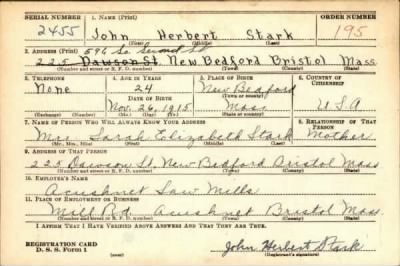 SERIAL NUMBER 1. NAME (Print) ORDER NUMBER
2455 John Herbert Stark 195
(First) (Middle) (Last)
2. ADDRESS (Print) 596 So Second St
225 Dawson St. New Bedford Bristol Mass
(Number and street or R. F. D. number) (Town) (County) (State)
3. TELEPHONE 4. AGE IN YEARS 5. PLACE OF BIRTH 6. COUNTRY OF CITIZENSHIP
None 24 New Bedford
DATE OF BIRTH (Town or county)
Nov. 26, 1915 Mass U S A
(Exchange) (Number) (Mo.) (Day) (Yr.) (State or country)
7. NAME OF PERSON WHO WILL ALWAYS KNOW YOUR ADDRESS 8. RELATIONSHIP OF THAT PERSON
Mrs. Sarah Elizabeth Stark Mother
(Mr., Mrs., Miss) (First) (Middle) (Last)
9. ADDRESS OF THAT PERSON
225 Dawson St, New Bedford Bristol Mass
(Number and street or R. F. D. number) (Town) (County) (State)
10. EMPLOYER'S NAME
Acushnet Saw Mills
11. PLACE OF EMPLOYMENT OR BUSINESS
Mill Rd. Acushnet Bristol Mass.
(Number and street or R. F. D. number) (Town) (County) (State)
I AFFIRM THAT I HAVE VERIFIED ABOVE ANSWERS AND THAT THEY ARE TRUE.
REGISTRATION CARD
D. S. S. Form 1 John Herbert Stark
(over) (Registrant's signature)